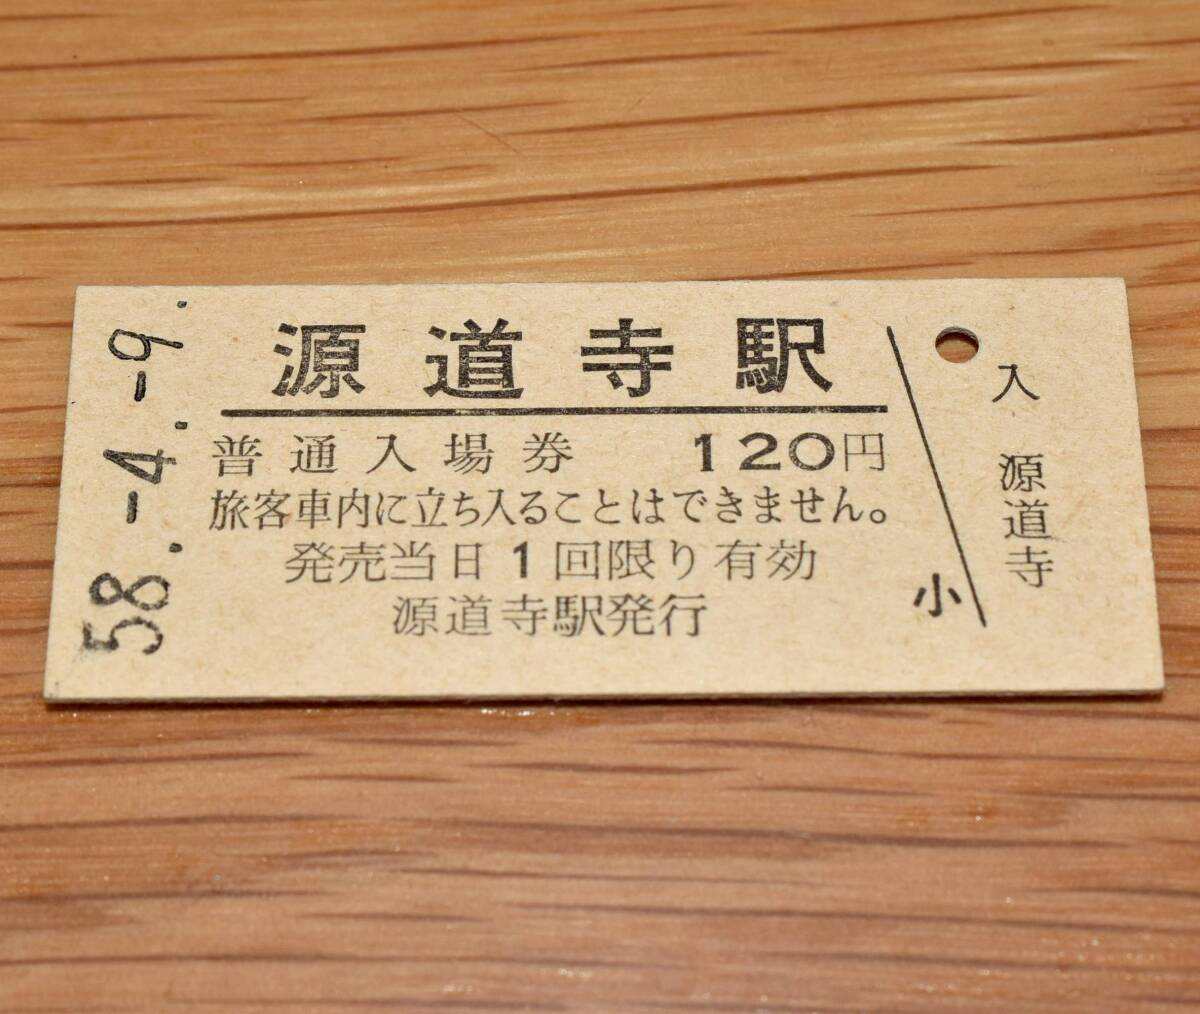 58.-4.-9.
源道寺駅
普通入場券 120円
旅客車内に立ち入ることはできません。
発売当日1回限り有効
源道寺駅発行
小
入
源道寺